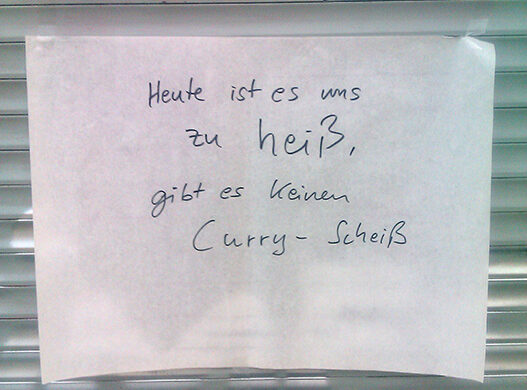 Heute ist es uns
zu heiß,
gibt es keinen
Curry - Scheiß